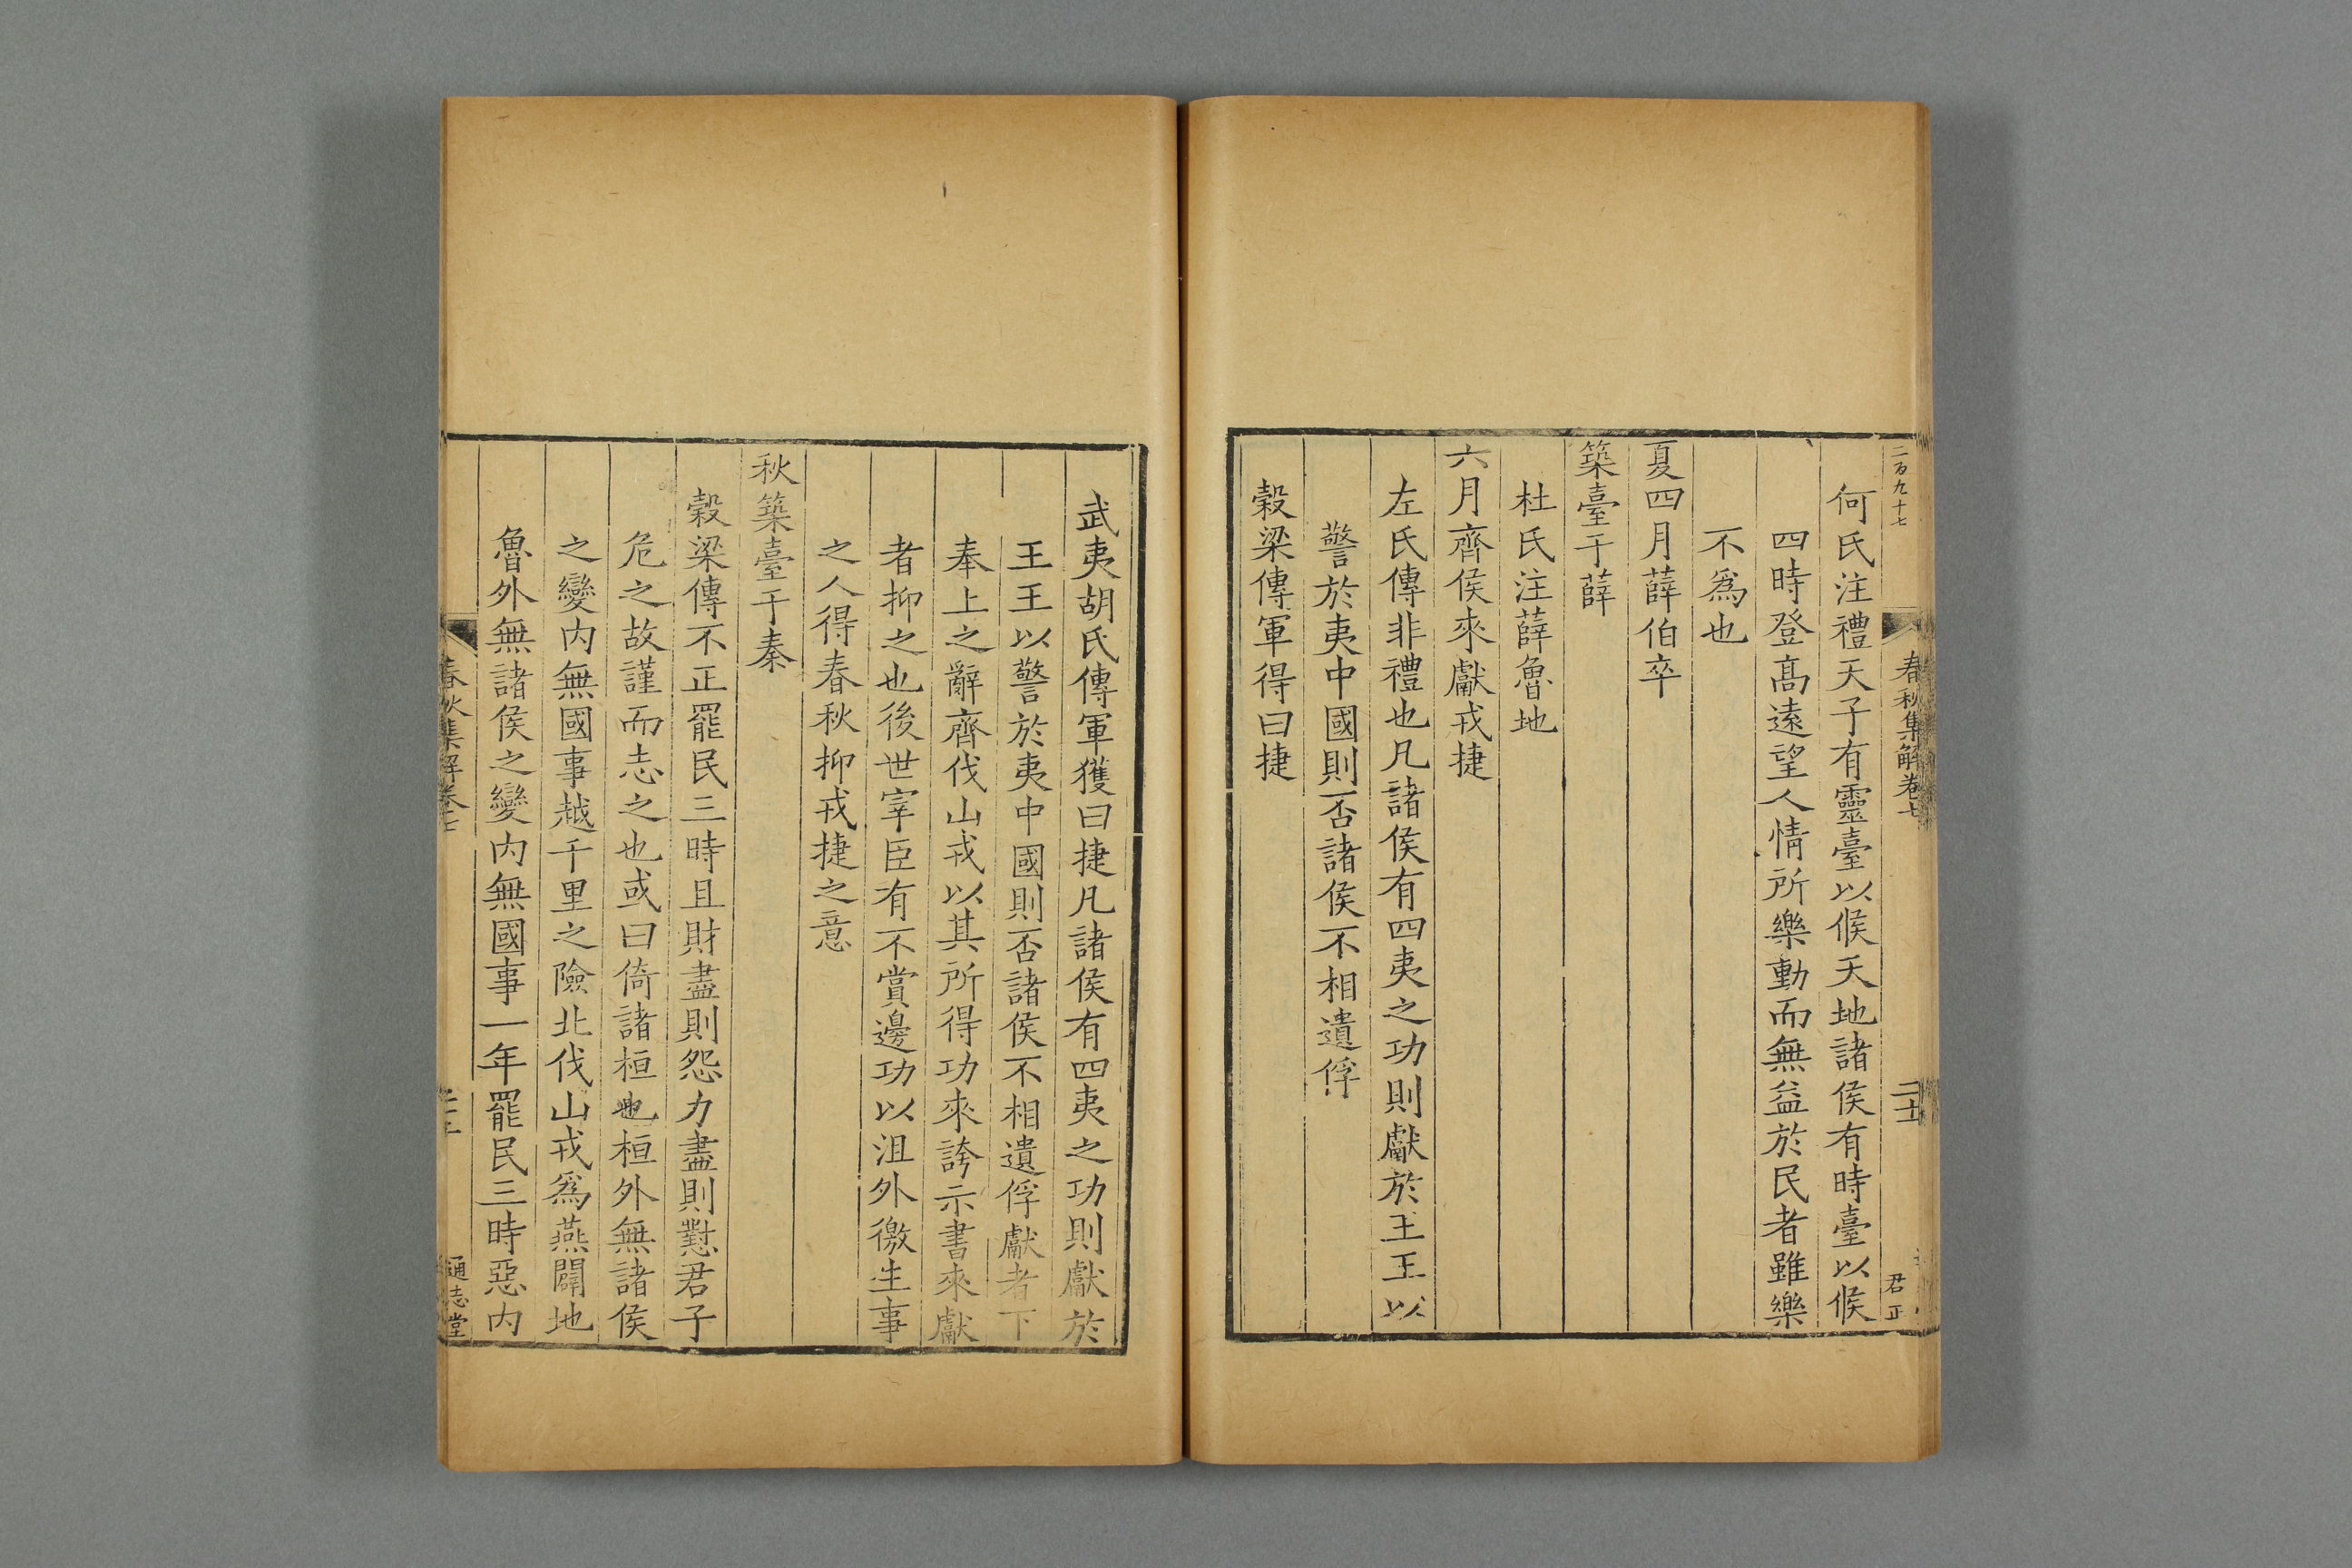 二百九十七
春秋集解卷七
二十
君正
何氏注禮天子有靈臺以候天地諸侯有時臺以候
四時登髙逺望人情所樂動而無益於民者雖樂
不爲也
夏四月薛伯卒
築臺于薛
杜氏注薛魯地
六月齊侯來獻戎捷
左氏傳非禮也凡諸侯有四夷之功則獻於王王以
警於夷中國則否諸侯不相遺俘
穀梁傳軍得曰捷
武夷胡氏傳軍獲曰捷凡諸侯有四夷之功則獻於
王王以警於夷中國則否諸侯不相遺俘獻者下
奉上之辭齊伐山戎以其所得功來誇示書來獻
者抑之也後世宰臣有不賞邊功以沮外徼生事
之人得春秋抑戎捷之意
秋築臺于秦
穀梁傳不正罷民三時且財盡則怨力盡則懟君子
危之故謹而志之也或曰倚諸桓也桓外無諸侯
之變内無國事越千里之險北伐山戎爲燕闢地
魯外無諸侯之變内無國事一年罷民三時惡内
春秋集解卷七
通志堂